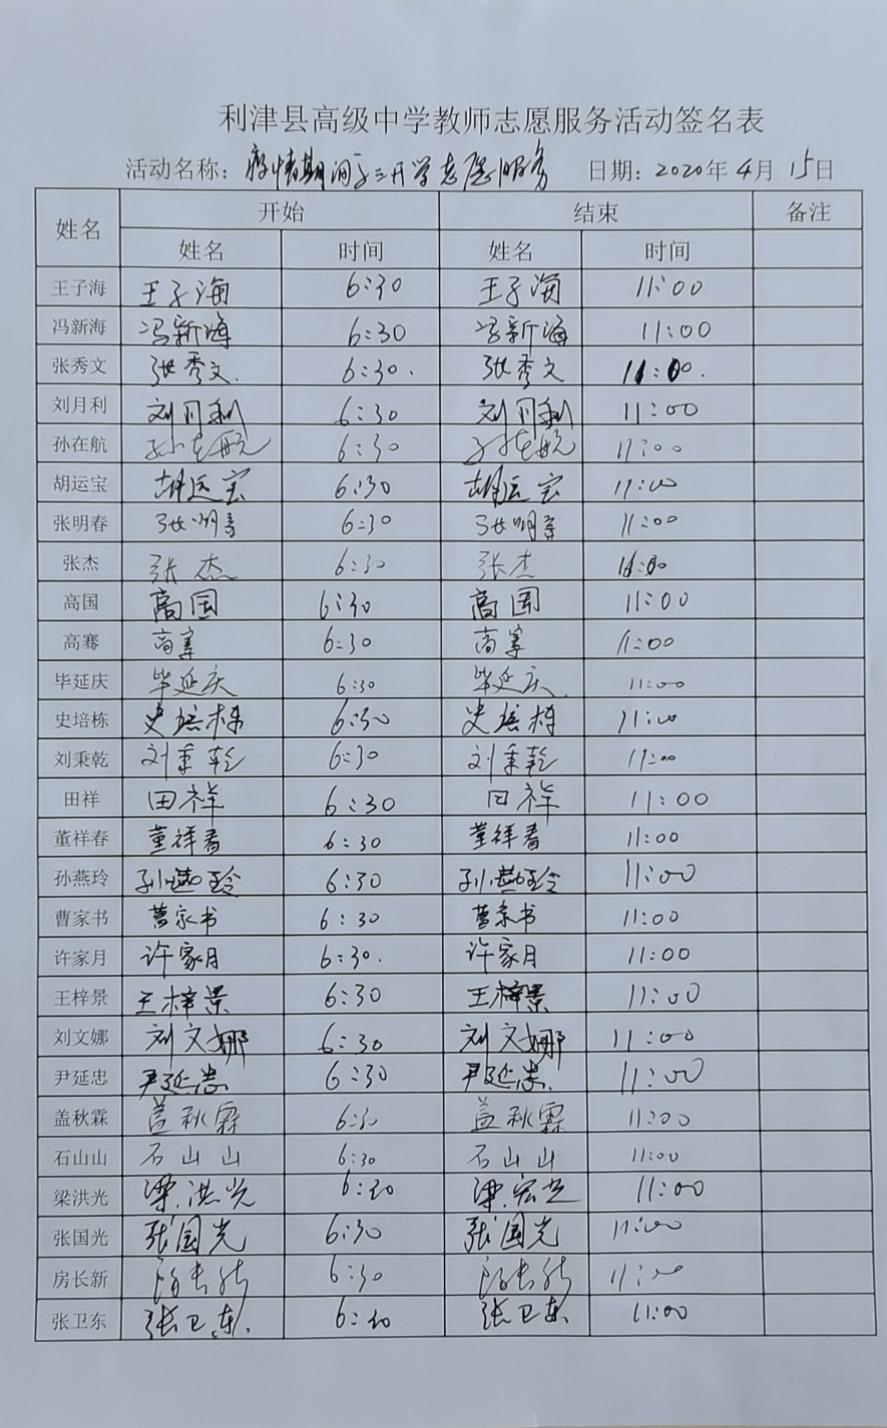 利津县高级中学教师志愿服务活动签名表
活动名称：疫情期间高三开学志愿服务 日期：2020年4月15日
姓名 开始 结束 备注
姓名 时间 姓名 时间
王子海 王子海 6:30 王子海 11:00
冯新海 冯新海 6:30 冯新海 11:00
张秀文 张秀文. 6:30. 张秀文 11:00.
刘月利 刘月利 6:30 刘月利 11:00
孙在航 孙在航 6:30 孙在航 11:00
胡运宝 胡运宝 6:30 胡运宝 11:00
张明春 张明春 6:30 张明春 11:00
张杰 张杰 6:30 张杰 11:00
高国 高国 6:30 高国 11:00
高骞 高骞 6:30 高骞 11:00
毕延庆 毕延庆 6:30 毕延庆. 11:00
史培栋 史培栋 6:30 史培栋 11:00
刘秉乾 刘秉乾 6:30 刘秉乾 11:00
田祥 田祥 6:30 田祥 11:00
董祥春 董祥春 6:30 董祥春 11:00
孙燕玲 孙燕玲 6:30 孙燕玲 11:00
曹家书 曹家书 6:30 曹家书 11:00
许家月 许家月 6:30. 许家月 11:00
王梓景 王梓景 6:30 王梓景 11:00
刘文娜 刘文娜 6:30 刘文娜 11:00
尹延忠 尹延忠 6:30 尹延忠. 11:00
盖秋霖 盖秋霖 6:30 盖秋霖 11:00
石山山 石山山 6:30 石山山 11:00
梁洪光 梁洪光 6:30 梁宏光 11:00
张国光 张国光 6:30 张国光 11:00
房长新 房长新 6:30 房长新 11:00
张卫东 张卫东. 6:30 张卫东. 11:00